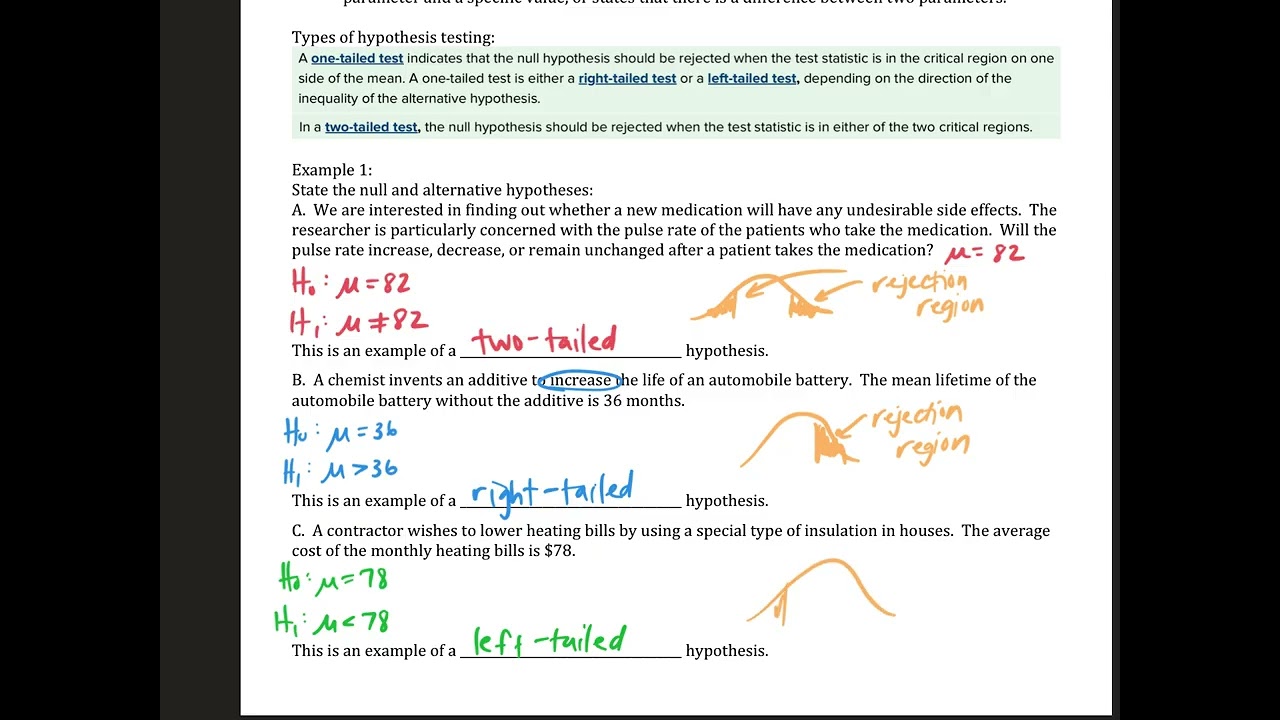 parameter and a specific value, or states that there is a difference between two parameters.
Types of hypothesis testing:
A one-tailed test indicates that the null hypothesis should be rejected when the test statistic is in the critical region on one
side of the mean. A one-tailed test is either a right-tailed test or a left-tailed test, depending on the direction of the
inequality of the alternative hypothesis.
In a two-tailed test, the null hypothesis should be rejected when the test statistic is in either of the two critical regions.
Example 1:
State the null and alternative hypotheses:
A. We are interested in finding out whether a new medication will have any undesirable side effects. The
researcher is particularly concerned with the pulse rate of the patients who take the medication. Will the
pulse rate increase, decrease, or remain unchanged after a patient takes the medication? μ = 82
H₀: μ = 82
rejection
region
H₁: μ ≠ 82
This is an example of a two-tailed hypothesis.
B. A chemist invents an additive to increase the life of an automobile battery. The mean lifetime of the
automobile battery without the additive is 36 months.
rejection
region
H₀: μ = 36
H₁: μ > 36
This is an example of a right-tailed hypothesis.
C. A contractor wishes to lower heating bills by using a special type of insulation in houses. The average
cost of the monthly heating bills is $78.
H₀: μ = 78
H₁: μ < 78
This is an example of a left-tailed hypothesis.